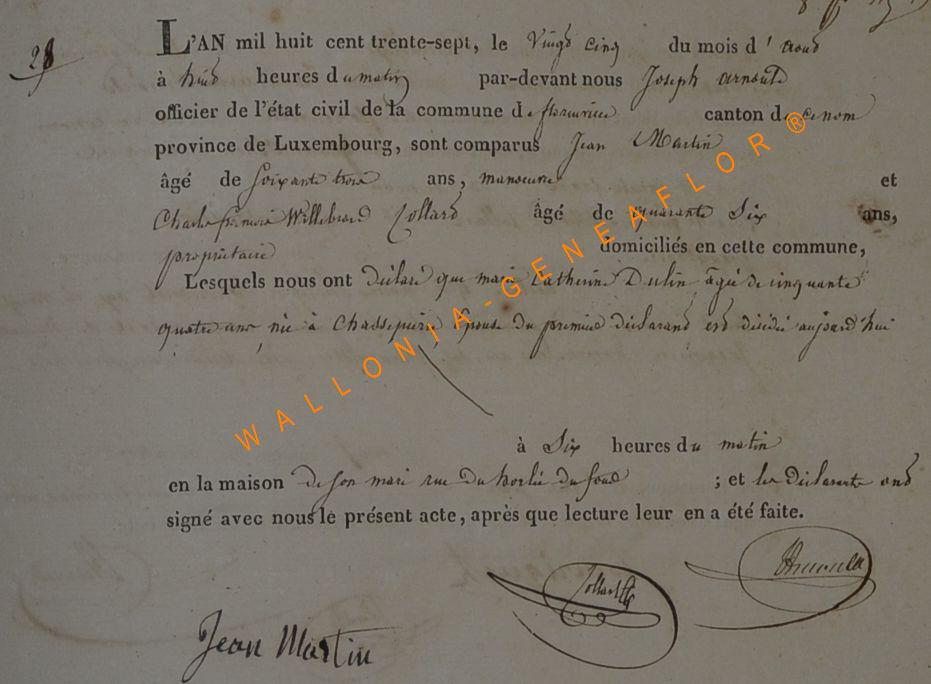 28
L'AN mil huit cent trente-sept, le Vingt Cinq du mois d'aout
à huit heures du matin par-devant nous Joseph arnould
officier de l'état civil de la commune de florenville canton de ce nom
province de Luxembourg, sont comparus Jean Martin
âgé de Soixante trois ans, manoeuvre et
Charles françois Willebrord Collard âgé de quarante Six ans,
propriétaire domiciliés en cette commune,
Lesquels nous ont déclaré que marie Catherine Dulin âgée de cinquante
quatre ans née à Chassepierre Épouse du premier déclarant est décédée aujourd'hui
à Six heures du matin
en la maison de son mari rue du ; et les déclarants ont
signé avec nous le présent acte, après que lecture leur en a été faite.
Arnould
Collard
Jean Martin
WALLONIA-GENEAFLOR ®